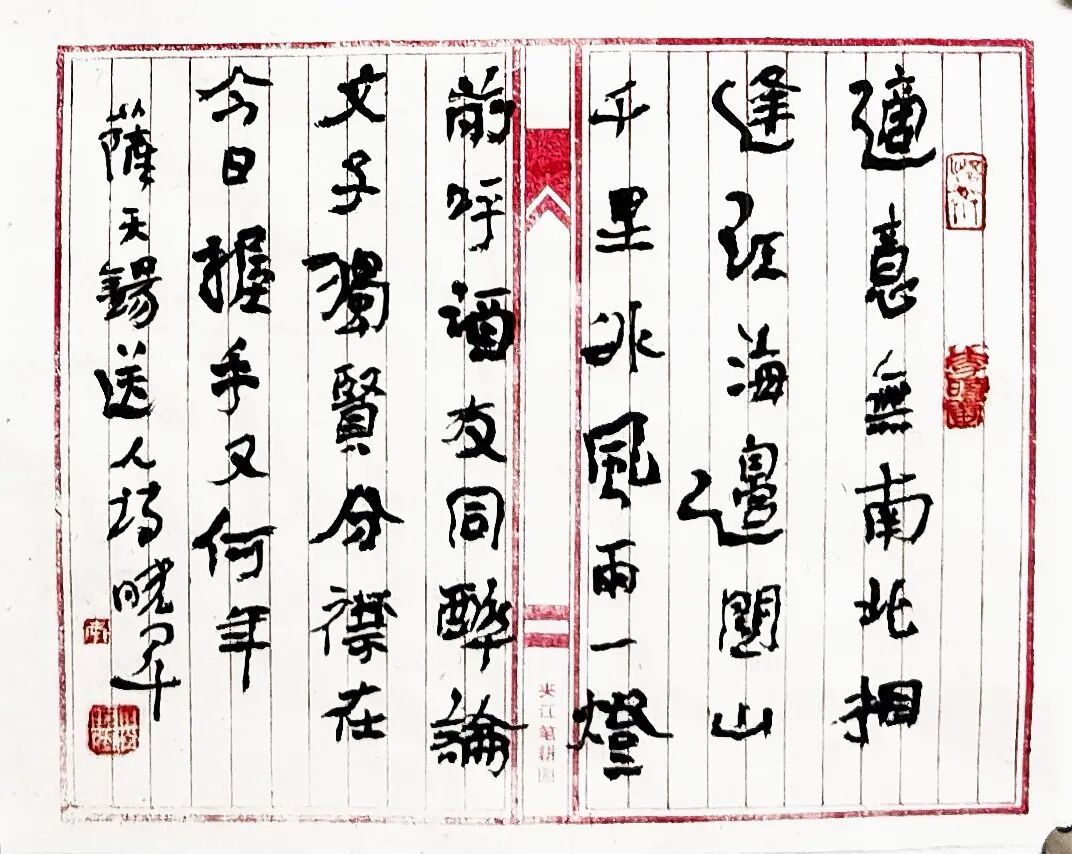 適意無南北相
逢江海邊關山
千里外風雨一燈
前呼酒友同醉論
文子獨賢分襟在
今日握手又何年
薩天錫送人詩曉軍